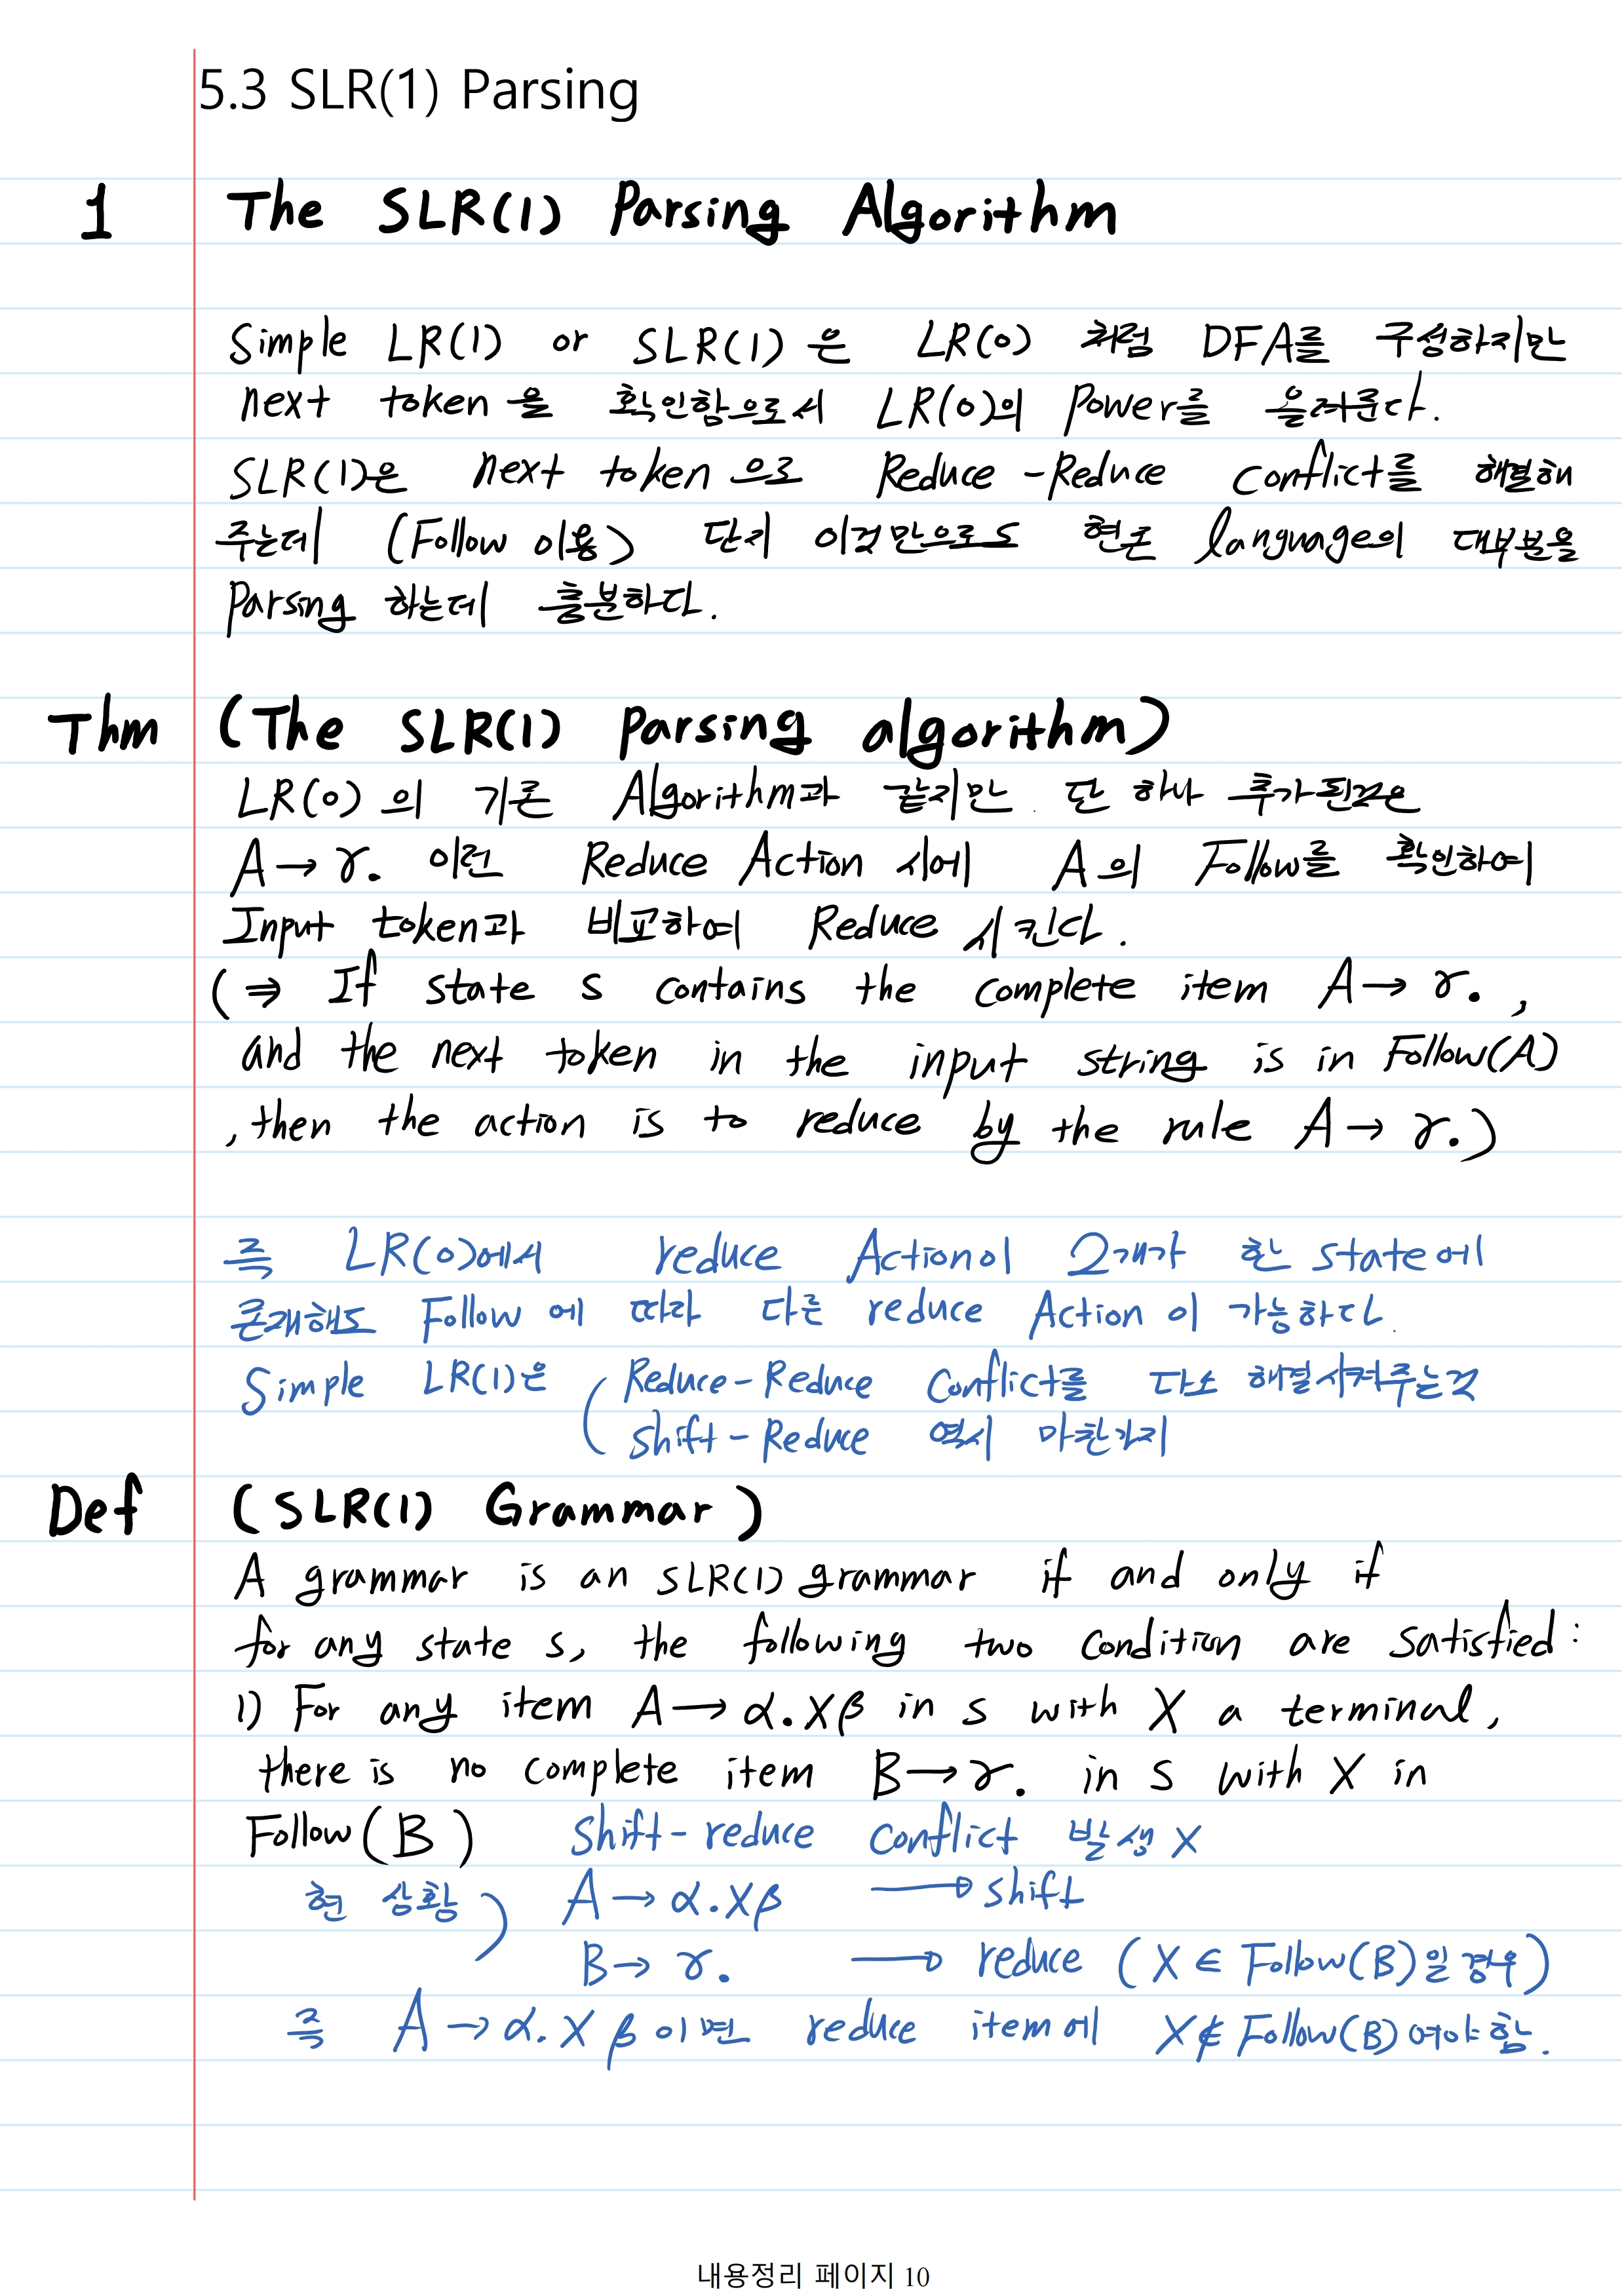 5.3 SLR(1) Parsing
1 The SLR(1) Parsing Algorithm
Simple LR(1) or SLR(1)은 LR(0) 처럼 DFA를 구성하지만
next token을 확인함으로서 LR(0)의 Power를 올려준다.
SLR(1)은 next token으로 Reduce-Reduce Conflict를 해결해
주는데 (Follow 이용) 단지 이것만으로도 현존 language의 대부분을
Parsing 하는데 충분하다.
Thm (The SLR(1) parsing algorithm)
LR(0)의 기존 Algorithm과 같지만. 단 하나 추가된것은
A → γ. 이런 Reduce Action 시에 A의 Follow를 확인하여
Input token과 비교하여 Reduce 시킨다.
(⇒ If state s contains the complete item A → γ. ,
and the next token in the input string is in Follow(A)
, then the action is to reduce by the rule A → γ.)
즉 LR(0)에서 reduce Action이 2개가 한 state에
존재해도 Follow에 따라 다른 reduce Action이 가능하다.
Simple LR(1)은 ( Reduce-Reduce Conflict를 다소 해결시켜주는것
Shift-Reduce 역시 마찬가지
Def (SLR(1) Grammar)
A grammar is an SLR(1) grammar if and only if
for any state s, the following two condition are satisfied:
1) For any item A → α.Xβ in s with X a terminal,
there is no complete item B → γ. in s with X in
Follow(B) Shift-reduce Conflict 발생 X
현 상황 ) A → α.Xβ → shift
B → γ. → reduce (X ∈ Follow(B)일 경우)
즉 A → α.Xβ이면 reduce item에 X∉Follow(B)여야 함.
내용정리 페이지 10